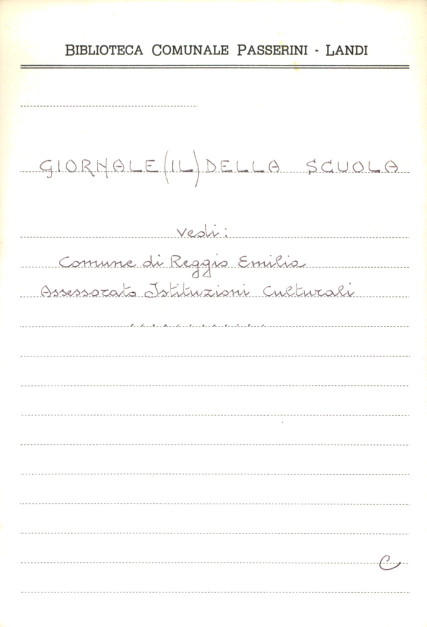 BIBLIOTECA COMUNALE PASSERINI - LANDI
GIORNALE (IL) DELLA SCUOLA
Vedi:
Comune di Reggio Emilia
Assessorato Istituzioni Culturali
. . . . . . . . . . .
C